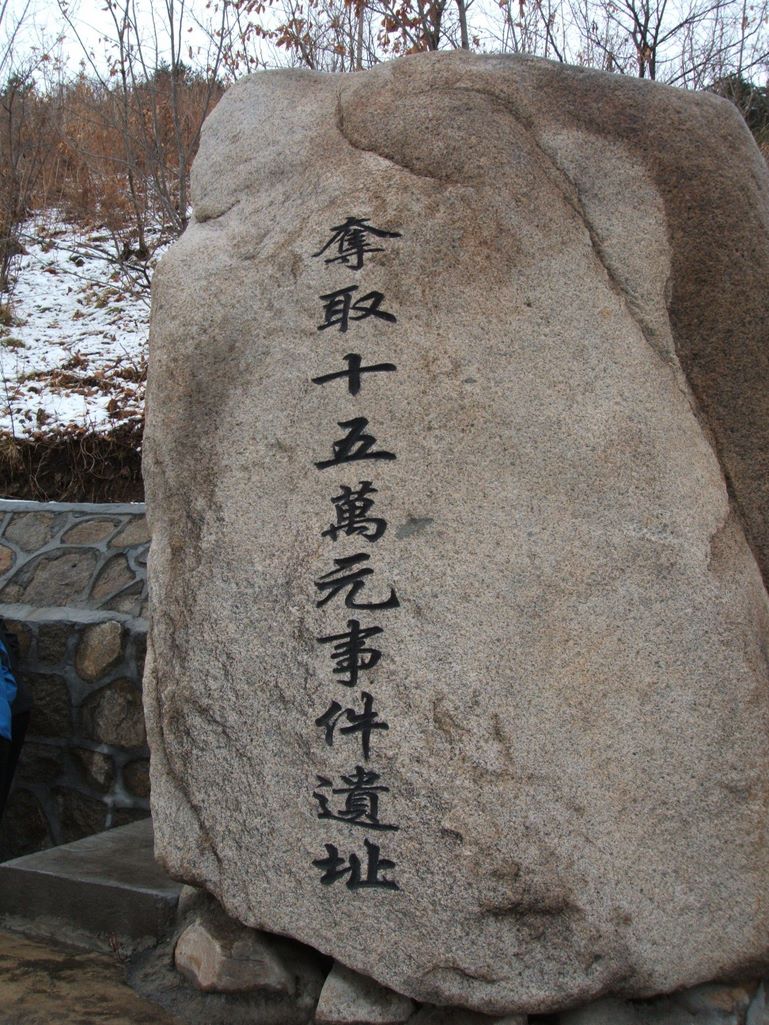 奪取十五萬元事件遺址